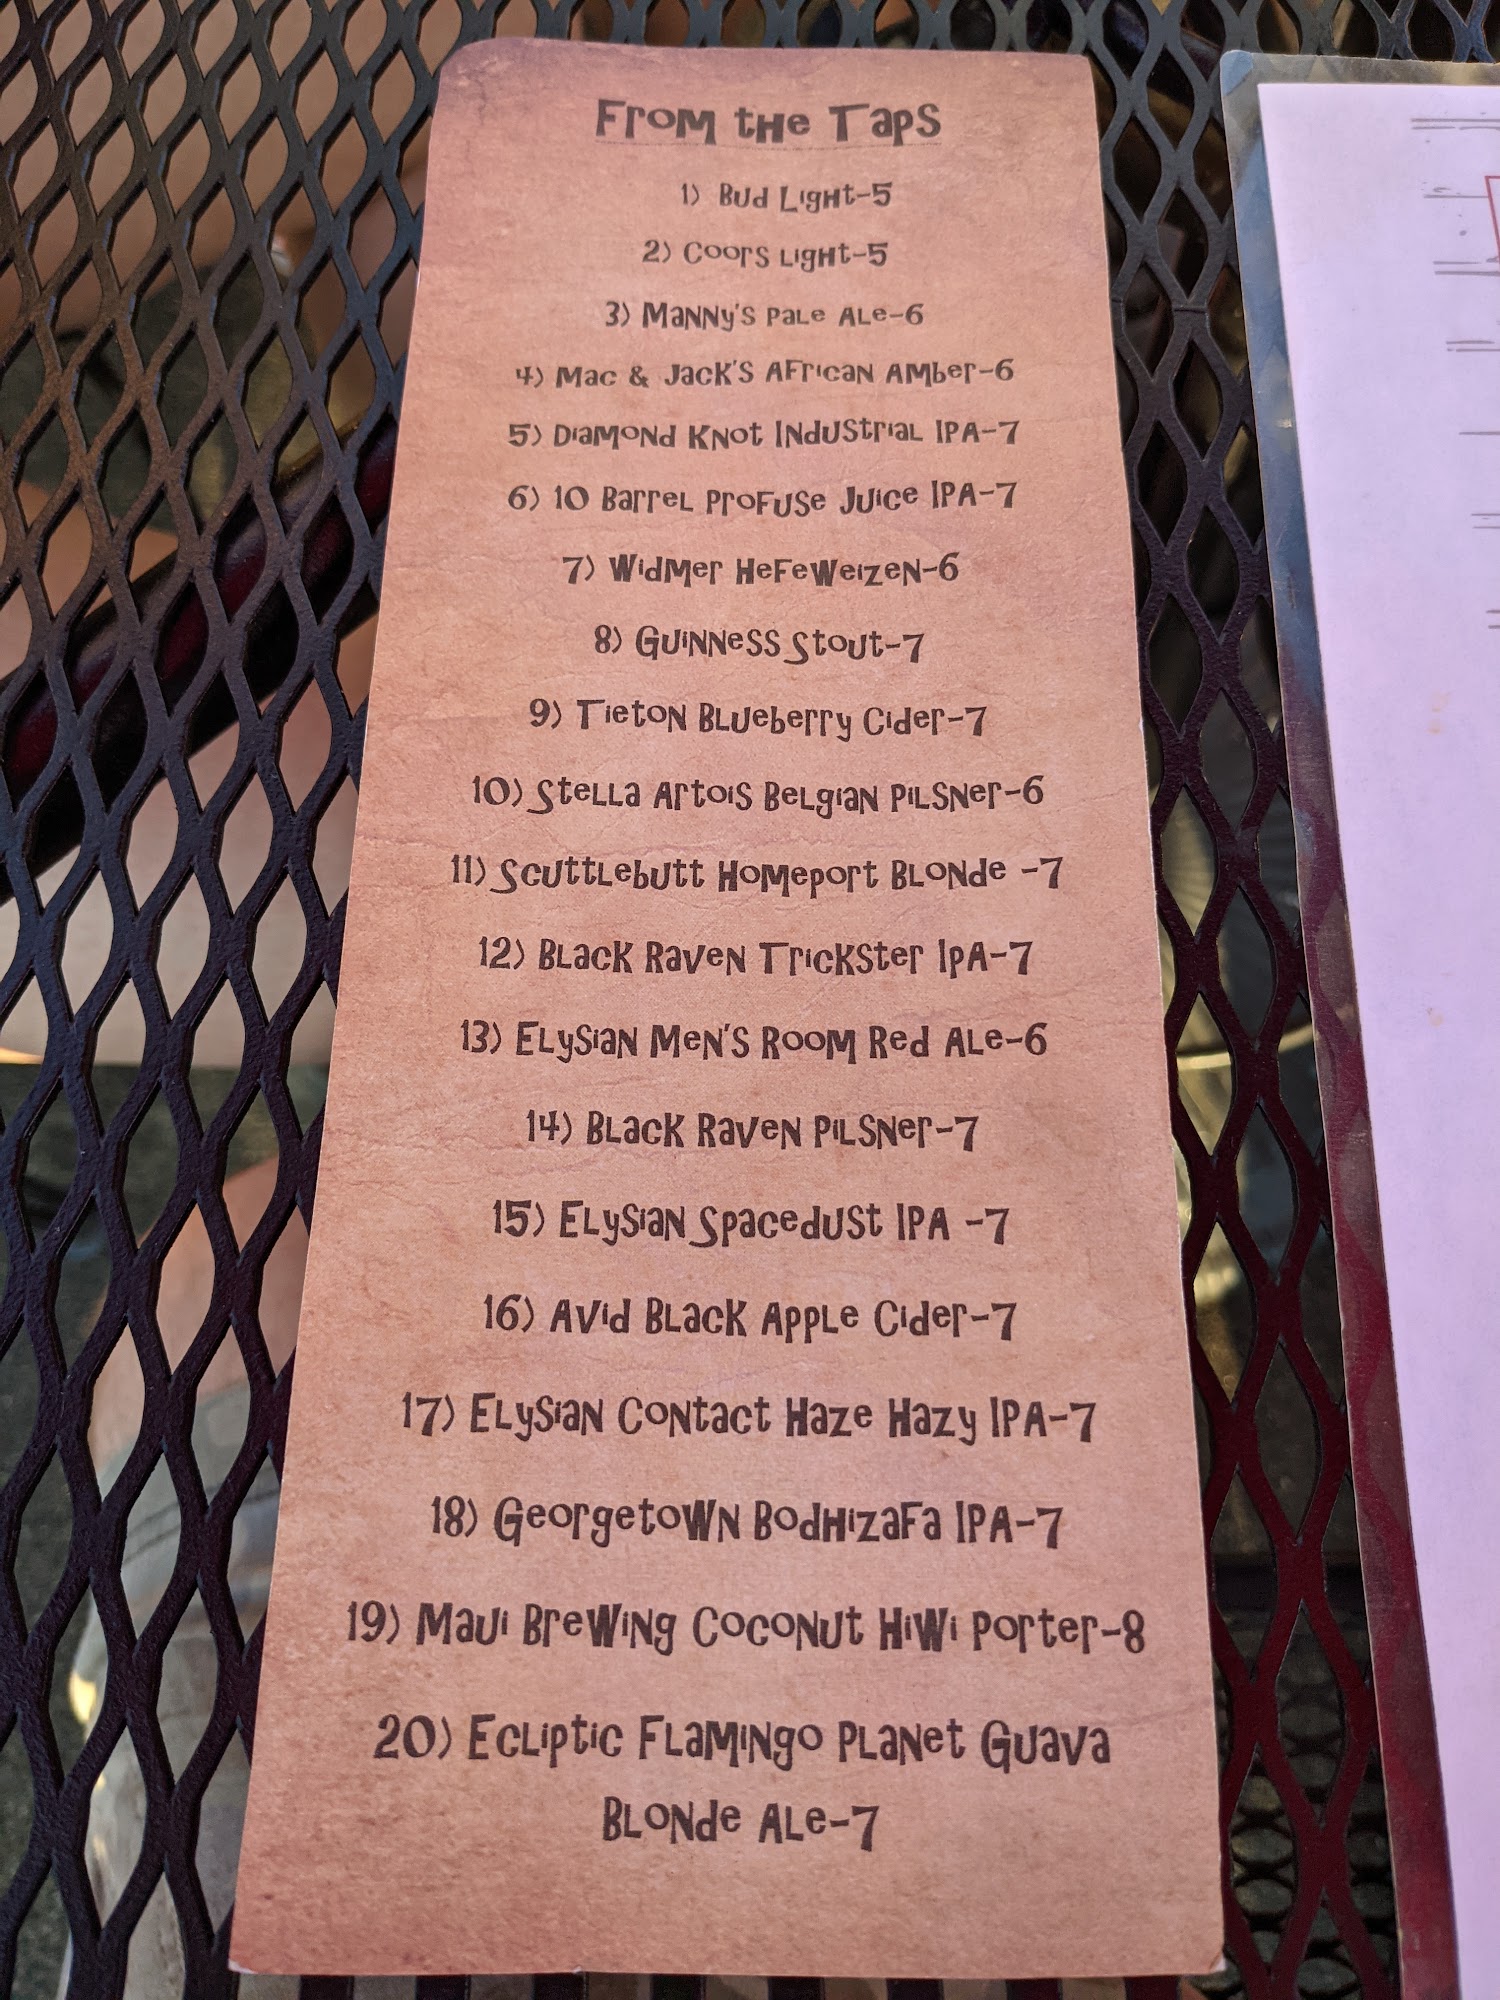 From the Taps
1) Bud Light-5
2) Coors Light-5
3) Manny's Pale Ale-6
4) Mac & Jack's African Amber-6
5) Diamond Knot Industrial IPA-7
6) 10 Barrel Profuse Juice IPA-7
7) Widmer Hefeweizen-6
8) Guinness Stout-7
9) Tieton Blueberry Cider-7
10) Stella Artois Belgian Pilsner-6
11) Scuttlebutt Homeport Blonde -7
12) Black Raven Trickster IPA-7
13) Elysian Men's Room Red Ale-6
14) Black Raven Pilsner-7
15) Elysian Spacedust IPA -7
16) Avid Black Apple Cider-7
17) Elysian Contact Haze Hazy IPA-7
18) Georgetown Bodhizafa IPA-7
19) Maui Brewing Coconut Hiwi Porter-8
20) Ecliptic Flamingo Planet Guava
Blonde Ale-7